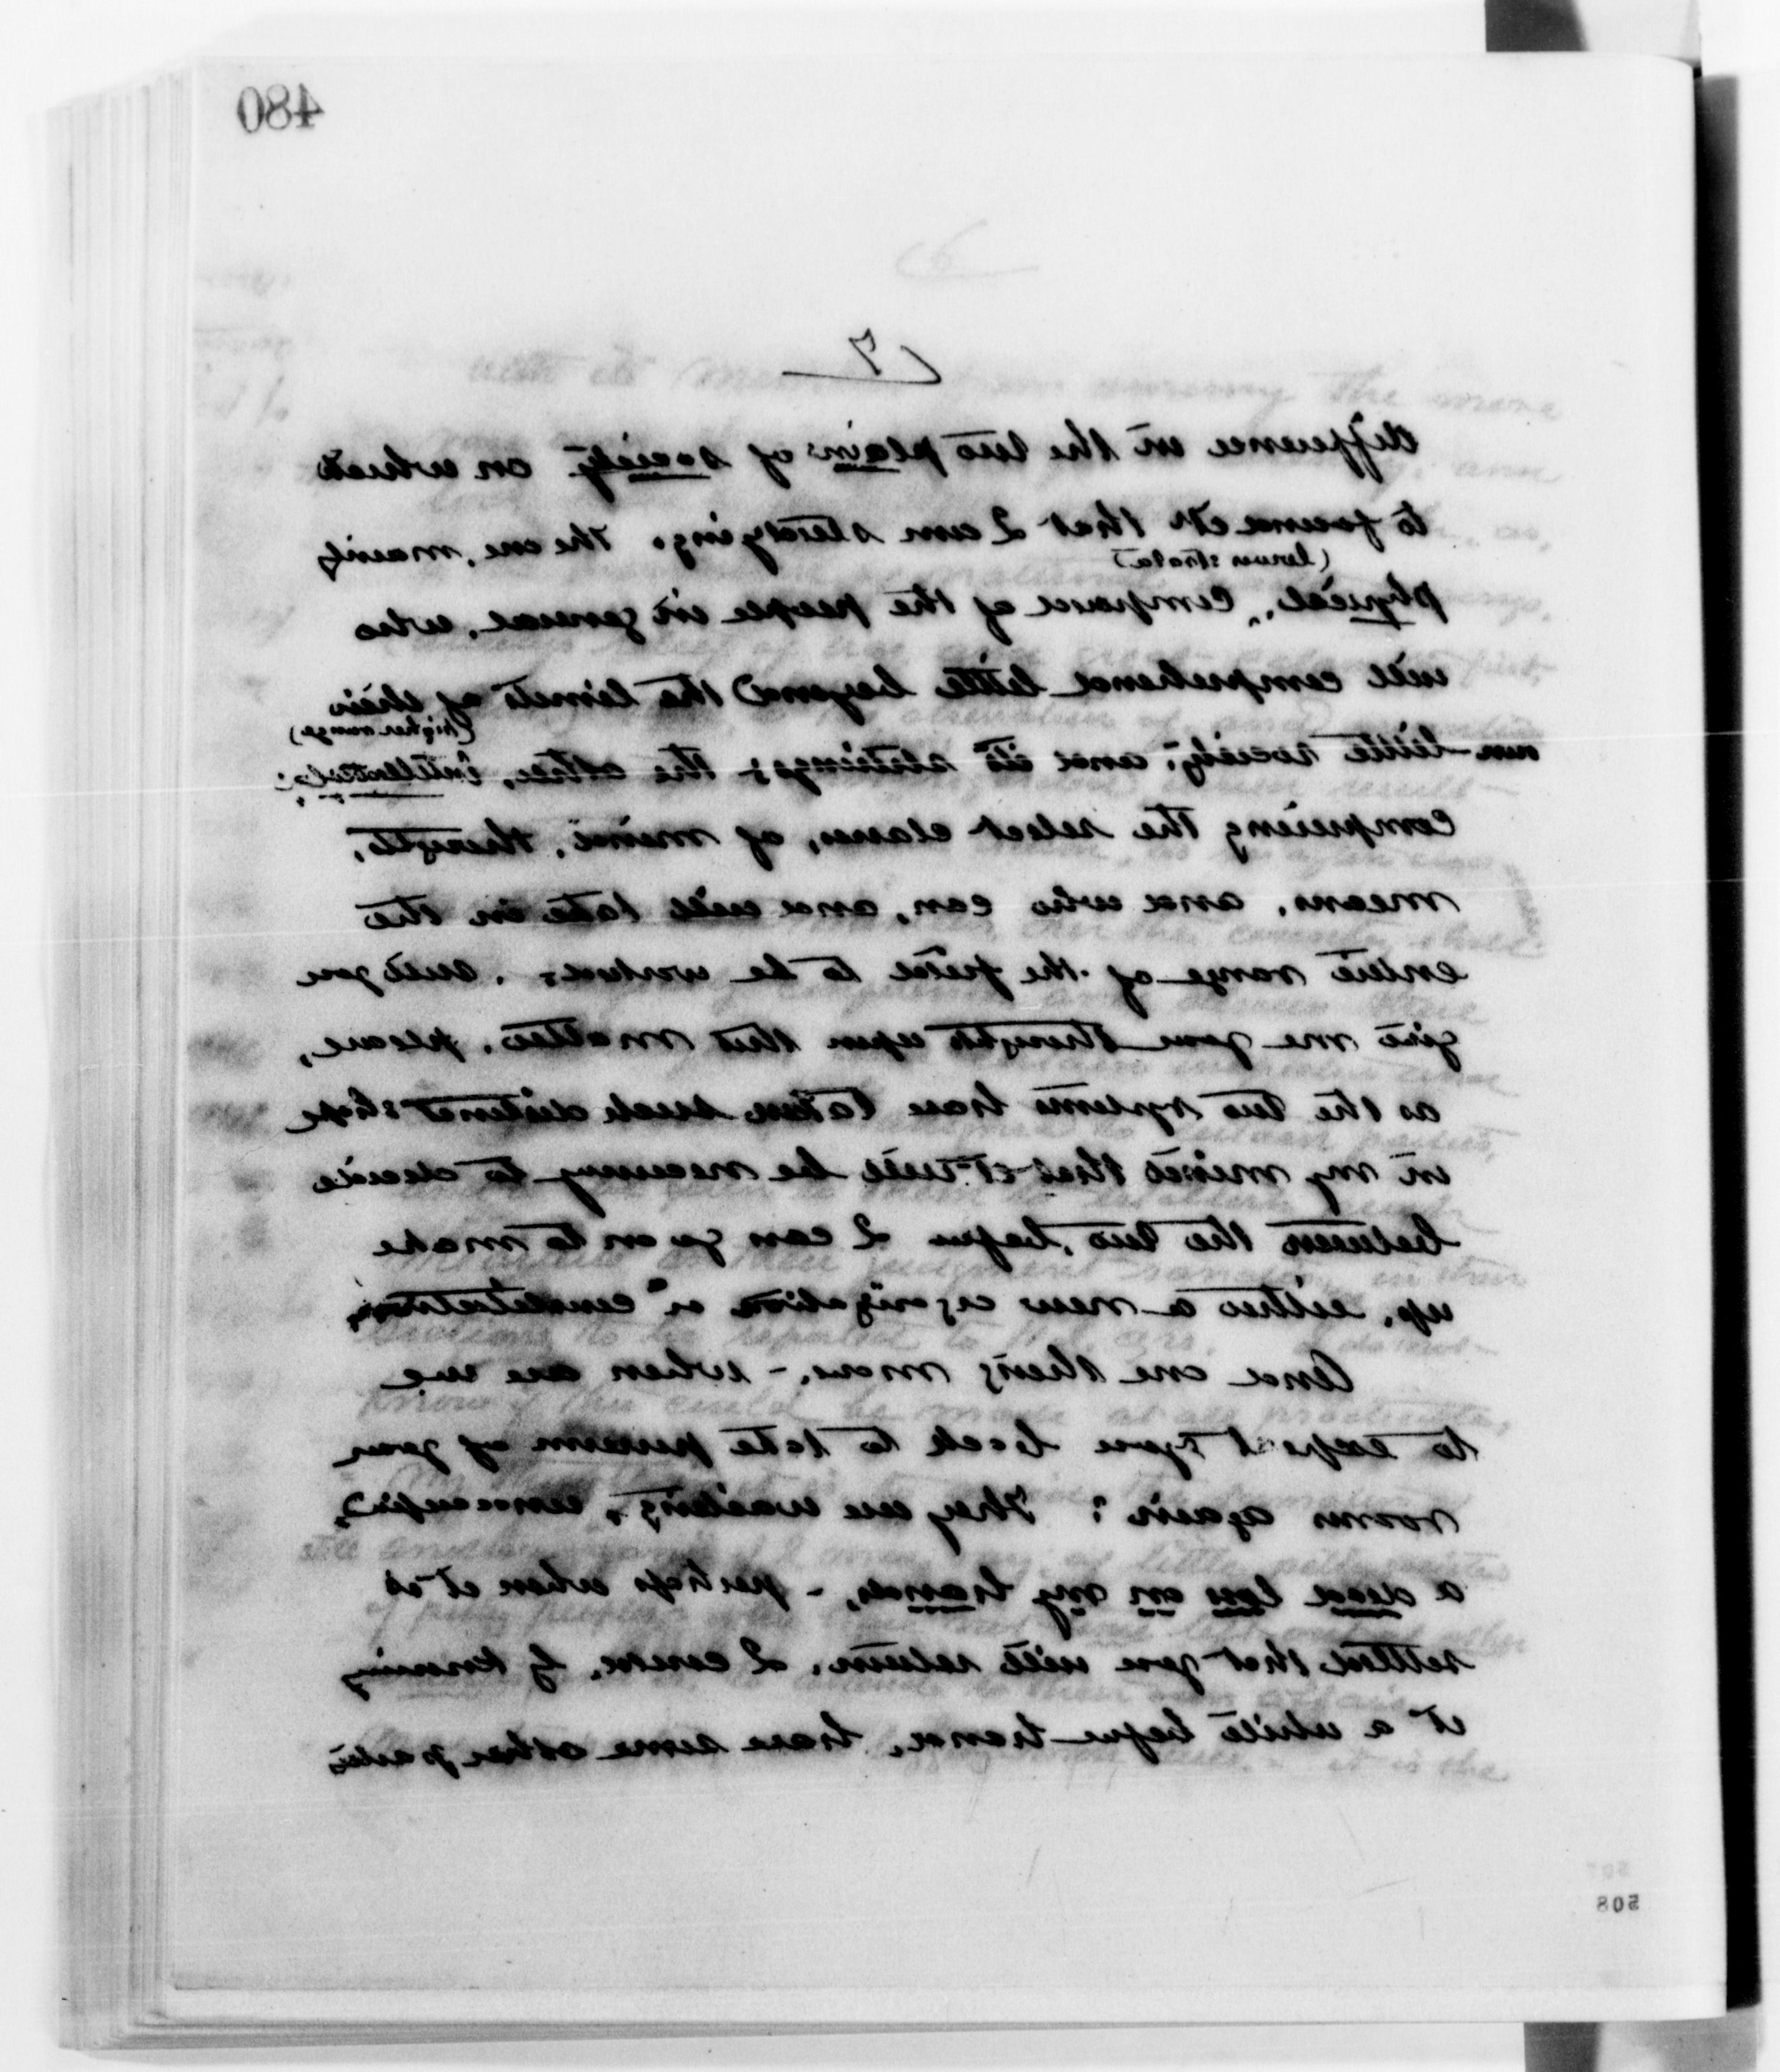 480
7
difference in the two plains of society on which
to found it that I am studying. The one, mainly
(lower strata)
physical, composed of the people in general, who
will comprehend little beyond the limits of their
(higher range)
own little society, and its strivings; the other, intellectual;
comprising the select classes, of mind, thought,
means, and who can, and will take in the
entire range of the field to be worked. Will you
give me your thoughts upon this matter, please,
as the two systems have taken such distinct shape
in my mind that it will be necessary to decide
between the two, before I can go on to make
up, either a new organization or constitution.
And one thing more, – when are we
to expect you back to take possession of your
rooms again? They are waiting, unoccupied,
a dead loss on my hands, – perhaps when it is
settled that you will return, I could, by knowing
it a while before hand, have some other parties
508